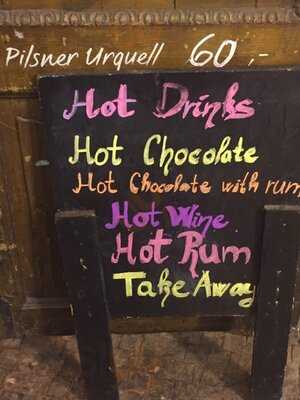 Pilsner Urquell 60,-
Hot Drinks
Hot Chocolate
Hot Chocolate with rum
Hot Wine
Hot Rum
Take Away